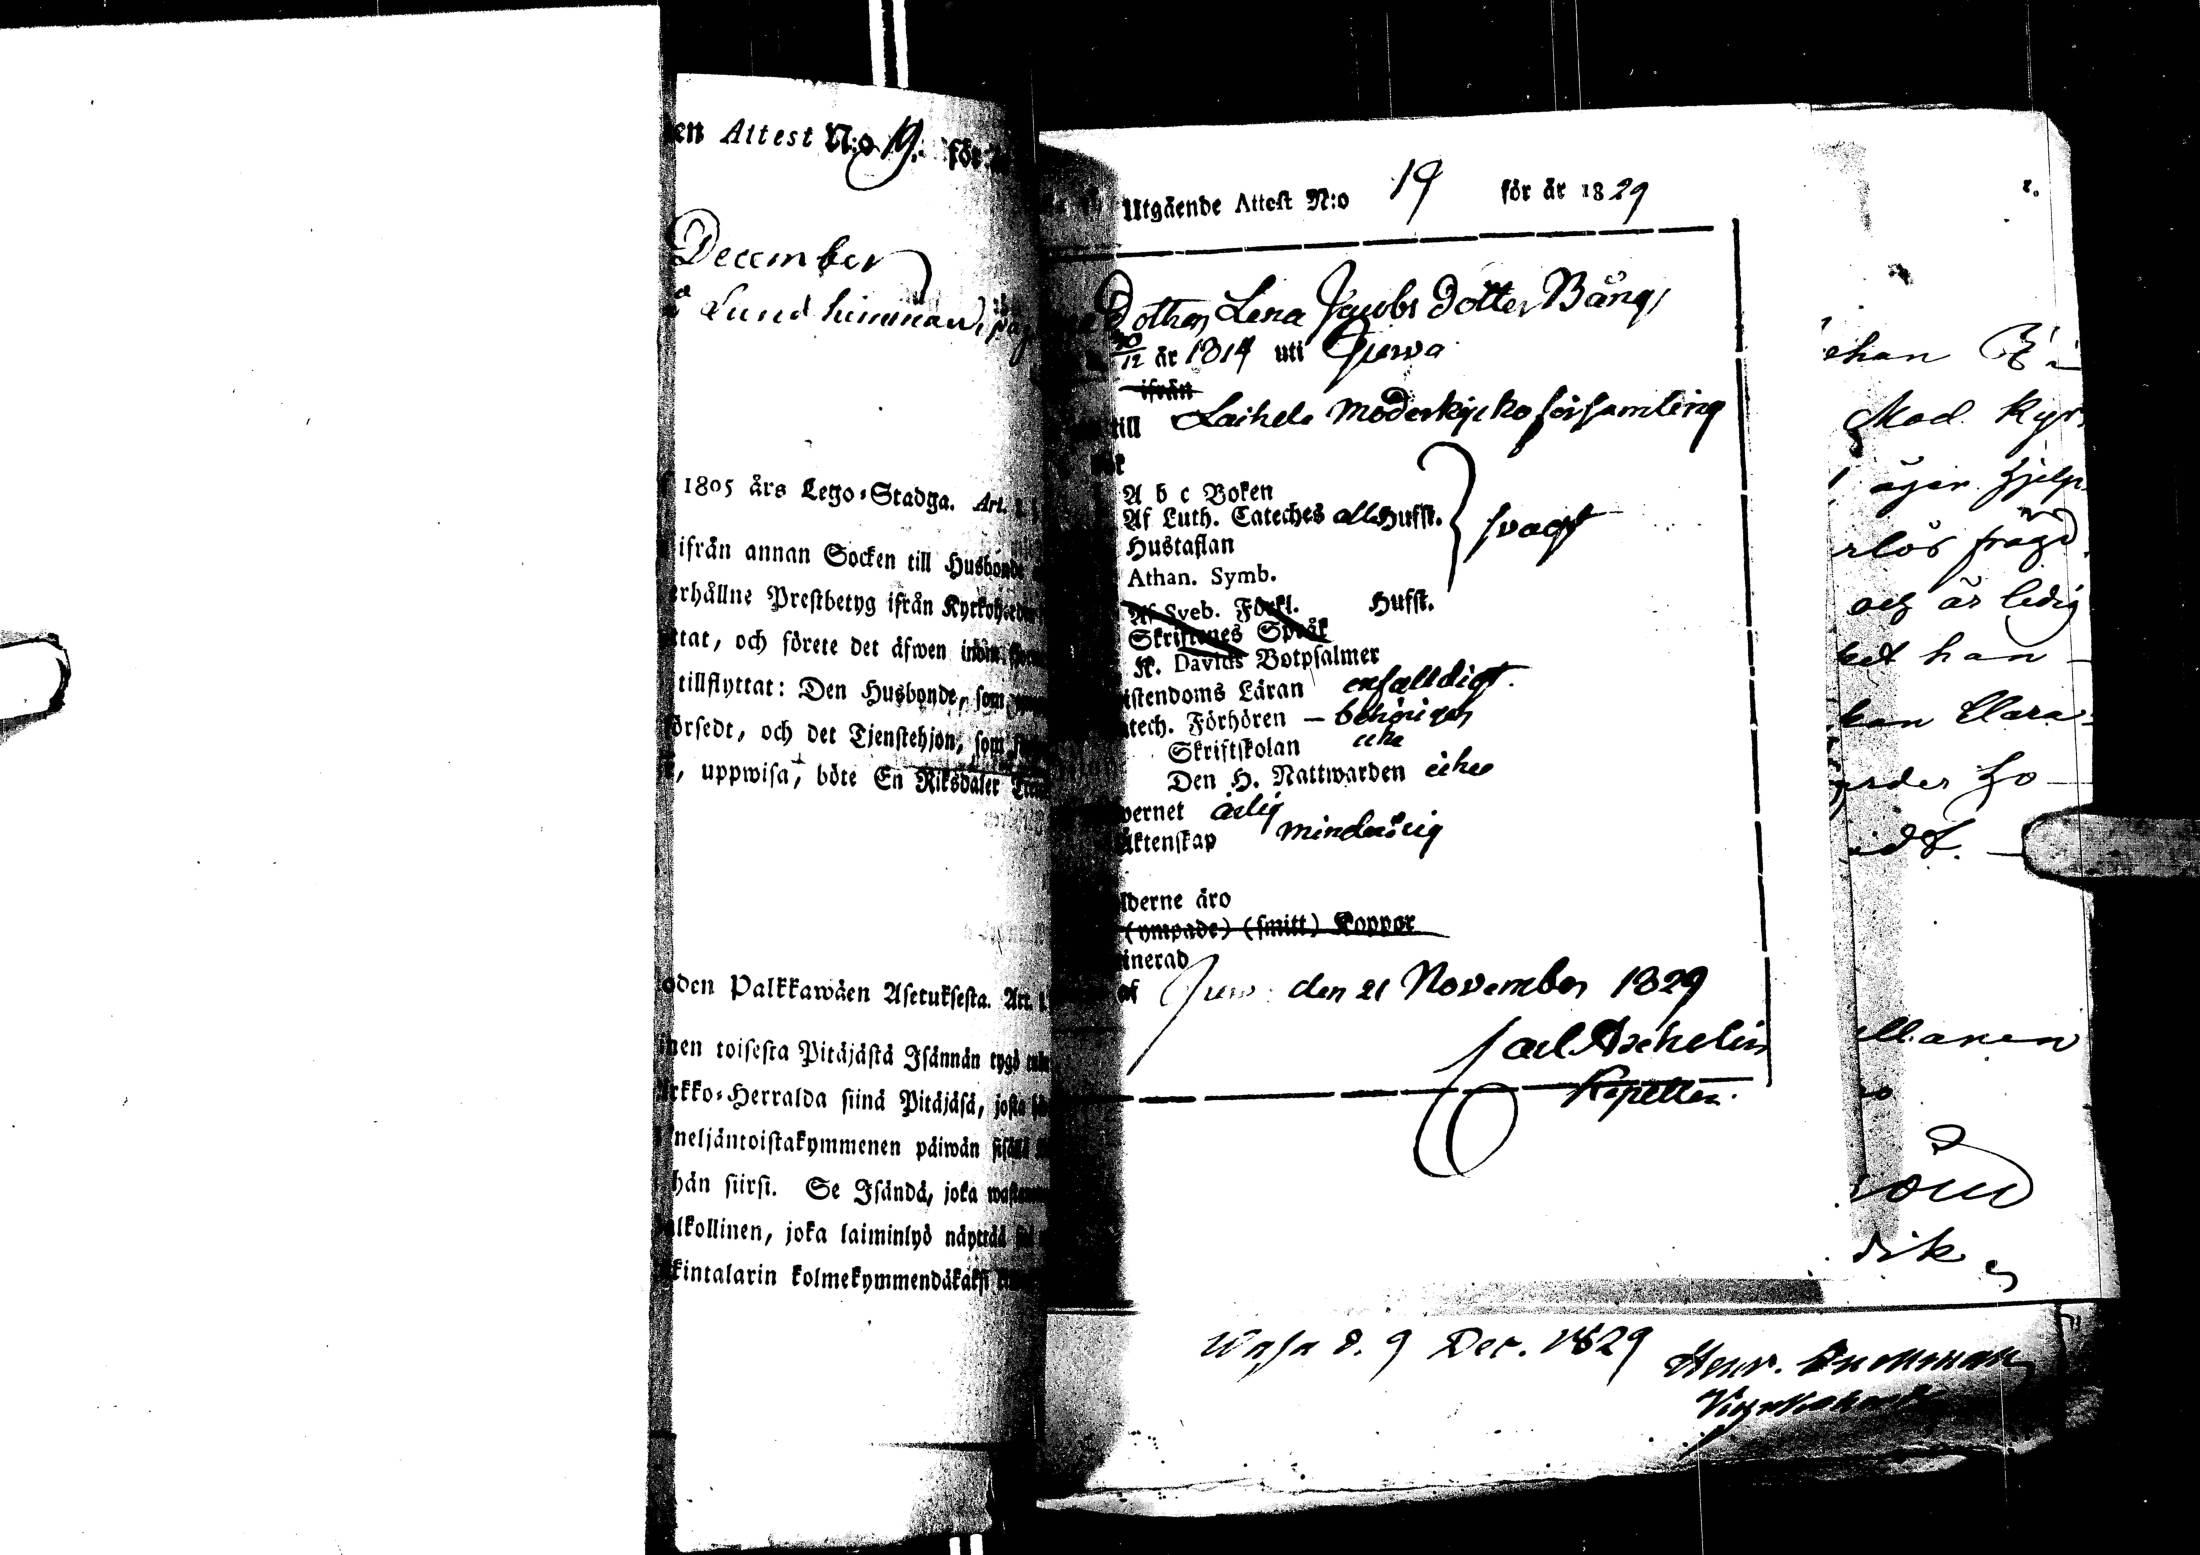 en Attest N:o 19. för
December
å Lund himman, pag
1805 års Lego-Stadga. Art.
ifrån annan Socken till Husbonde
erhållne Prestbetyg ifrån Kyrkoherden
ttat, och förete det äfwen inom
tillflyttat: Den Husbonde, som
försedt, och det Tjenstehjon, som
, uppwisa, böte En Riksdaler
oden Palkkawäen Asetuksesta. Art.
inen toisesta Pitäjästä Isännän tygö
irkko-Herralda siinä Pitäjäsä, josta
neljäntoistakymmenen päiwän sisällä
hän siirsi. Se Isändä, joka
alkollinen, joka laiminlyö näyttää
kintalarin kolmekymmendäkaksi
Utgående Attest N:o 19 för år 1829
Dottren Lena Jacobs dotter Bång,
30/12 år 1814 uti Qvewa
ifrån
till Laihela Moderkyrko församling
A b c Boken
Af Luth. Cateches alla Hufst. svagt
Hustaflan
Athan. Symb.
Af Sveb. Förkl. Hufst.
Skriftenes Språk
K. Davids Botpsalmer
istendoms Läran enfalldigt.
atech. Förhören – behörigen
Skriftskolan icke
Den H. Nattwarden icke
wernet ärlig
äktenskap minderårig
lderne äro
(ympade) (smitt) Koppor
inerad
af den 21 November 1829
Carl Aschelin
Kapellan.
ehan
Mod. Kyr
äger hjelp
rlös frägd
och är ledig
ket han
kan Clara
der
Wasa d. 9 Dec. 1829
Henr.